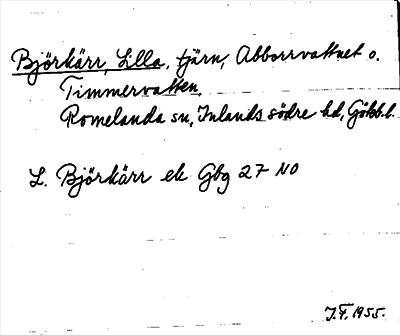 Björkärr, Lilla, tjärn, Abborrvattnet o.
Timmervatten.
Romelanda sn, Inlands södre hd, Götebb. l.
L. Björkärr ek Gbg 27 NO
J.F. 1955.